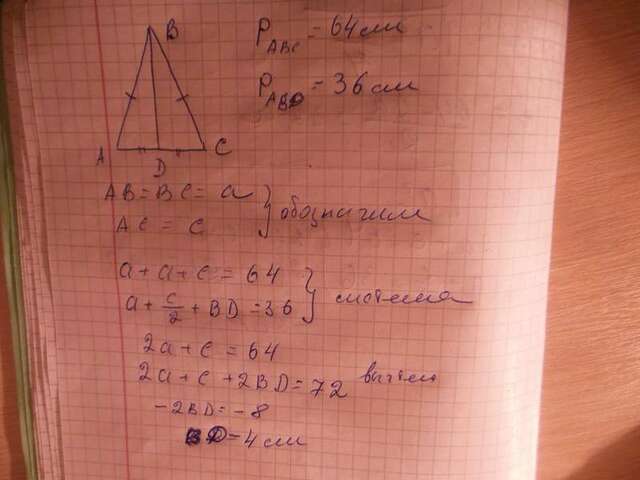 B
P_ABC = 64 см
P_ABD = 36 см
A D C
AB = BC = a
AC = c
} обозначим
a + a + c = 64
a + c/2 + BD = 36
} система
2a + c = 64
2a + c + 2BD = 72 вычтем
-2BD = -8
BD = 4 см